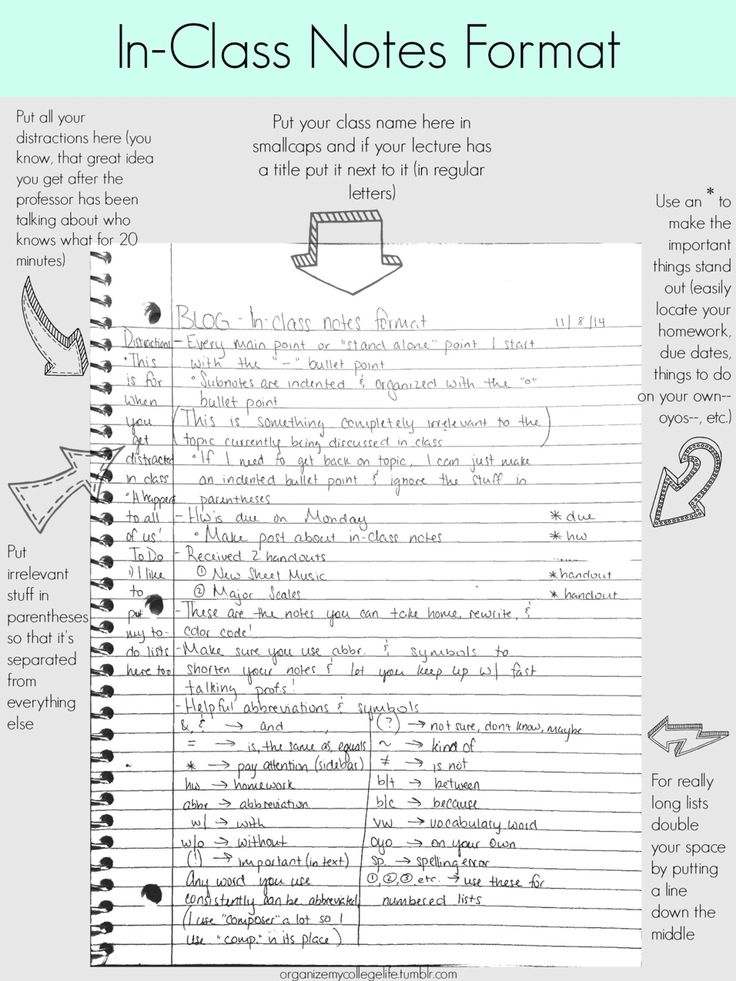 In-Class Notes Format
Put all your
distractions here (you
know, that great idea
you get after the
professor has been
talking about who
knows what for 20
minutes)
Put your class name here in
smallcaps and if your lecture has
a title put it next to it (in regular
letters)
Use an * to
make the
important
things stand
out (easily
locate your
homework,
due dates,
things to do
on your own--
oyos--, etc.)
BLOG - In-class notes format 11/8/14
Distractions
• This
is for
when
you
get
distracted
in class
• It happens
to all
of us!
To Do
1) I like
to
put
my to-
do lists
here too
- Every main point or "stand alone" point I start
with the "-" bullet point
° Subnotes are indented & organized with the "o"
bullet point
(This is something completely irrelevant to the
topic currently being discussed in class)
° If I need to get back on topic, I can just make
an indented bullet point & ignore the stuff in
parentheses
- HW is due on Monday * due
° Make post about in-class notes * hw
- Received 2 handouts
① New Sheet Music * handout
② Major Scales * handout
- These are the notes you can take home, rewrite, &
color code!
- Make sure you use abbr. & symbols to
shorten your notes & let you keep up w/ fast
talking profs!
- Helpful abbreviations & symbols
&, & → and
= → is, the same as, equals
* → pay attention (sidebar)
hw → homework
abbr → abbreviation
w/ → with
w/o → without
(!) → important (in text)
Any word you use
consistently can be abbreviated
(I use "composer" a lot so I
use "comp." in its place)
(?) → not sure, don't know, maybe
~ → kind of
≠ → is not
b/t → between
b/c → because
vw → vocabulary word
oyo → on your own
sp. → spelling error
①,②,③, etc. → use these for
numbered lists
Put
irrelevant
stuff in
parentheses
so that it's
separated
from
everything
else
For really
long lists
double
your space
by putting
a line
down the
middle
organizemycollegelife.tumblr.com